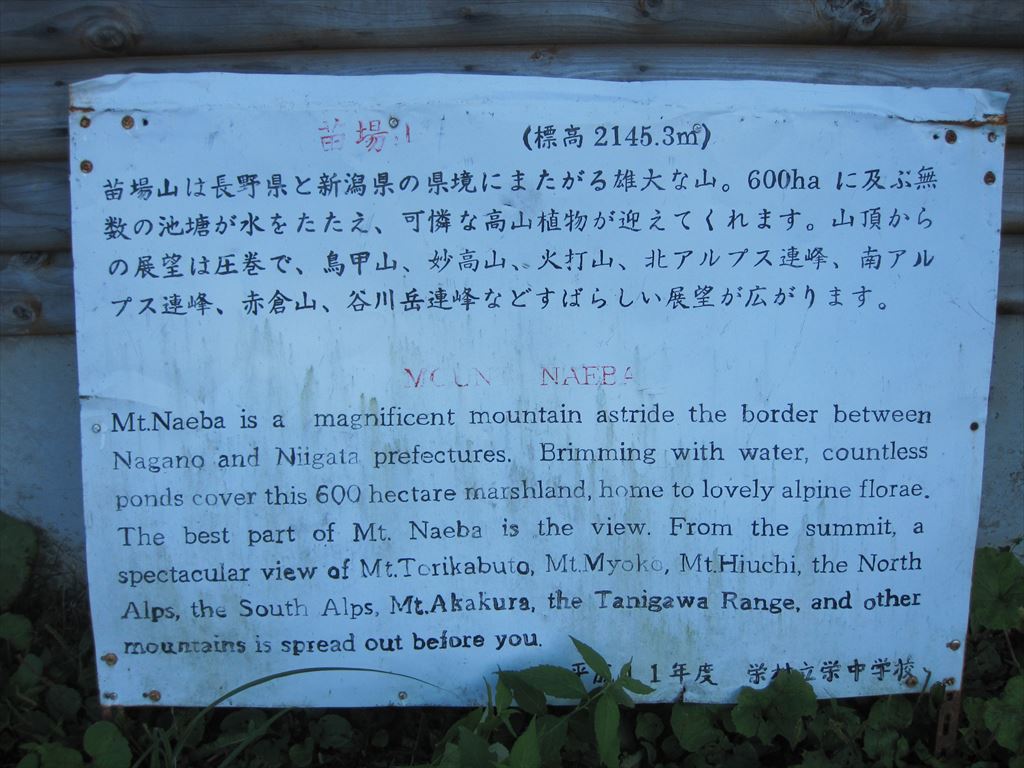 苗場山 (標高 2145.3m)
苗場山は長野県と新潟県の県境にまたがる雄大な山。600ha に及ぶ無
数の池塘が水をたたえ、可憐な高山植物が迎えてくれます。山頂から
の展望は圧巻で、鳥甲山、妙高山、火打山、北アルプス連峰、南アル
プス連峰、赤倉山、谷川岳連峰などすばらしい展望が広がります。
MOUNT NAEBA
Mt.Naeba is a magnificent mountain astride the border between
Nagano and Niigata prefectures. Brimming with water, countless
ponds cover this 600 hectare marshland, home to lovely alpine florae.
The best part of Mt. Naeba is the view. From the summit, a
spectacular view of Mt.Torikabuto, Mt.Myoko, Mt.Hiuchi, the North
Alps, the South Alps, Mt.Akakura, the Tanigawa Range, and other
mountains is spread out before you.
1年度 栄村立栄中学校